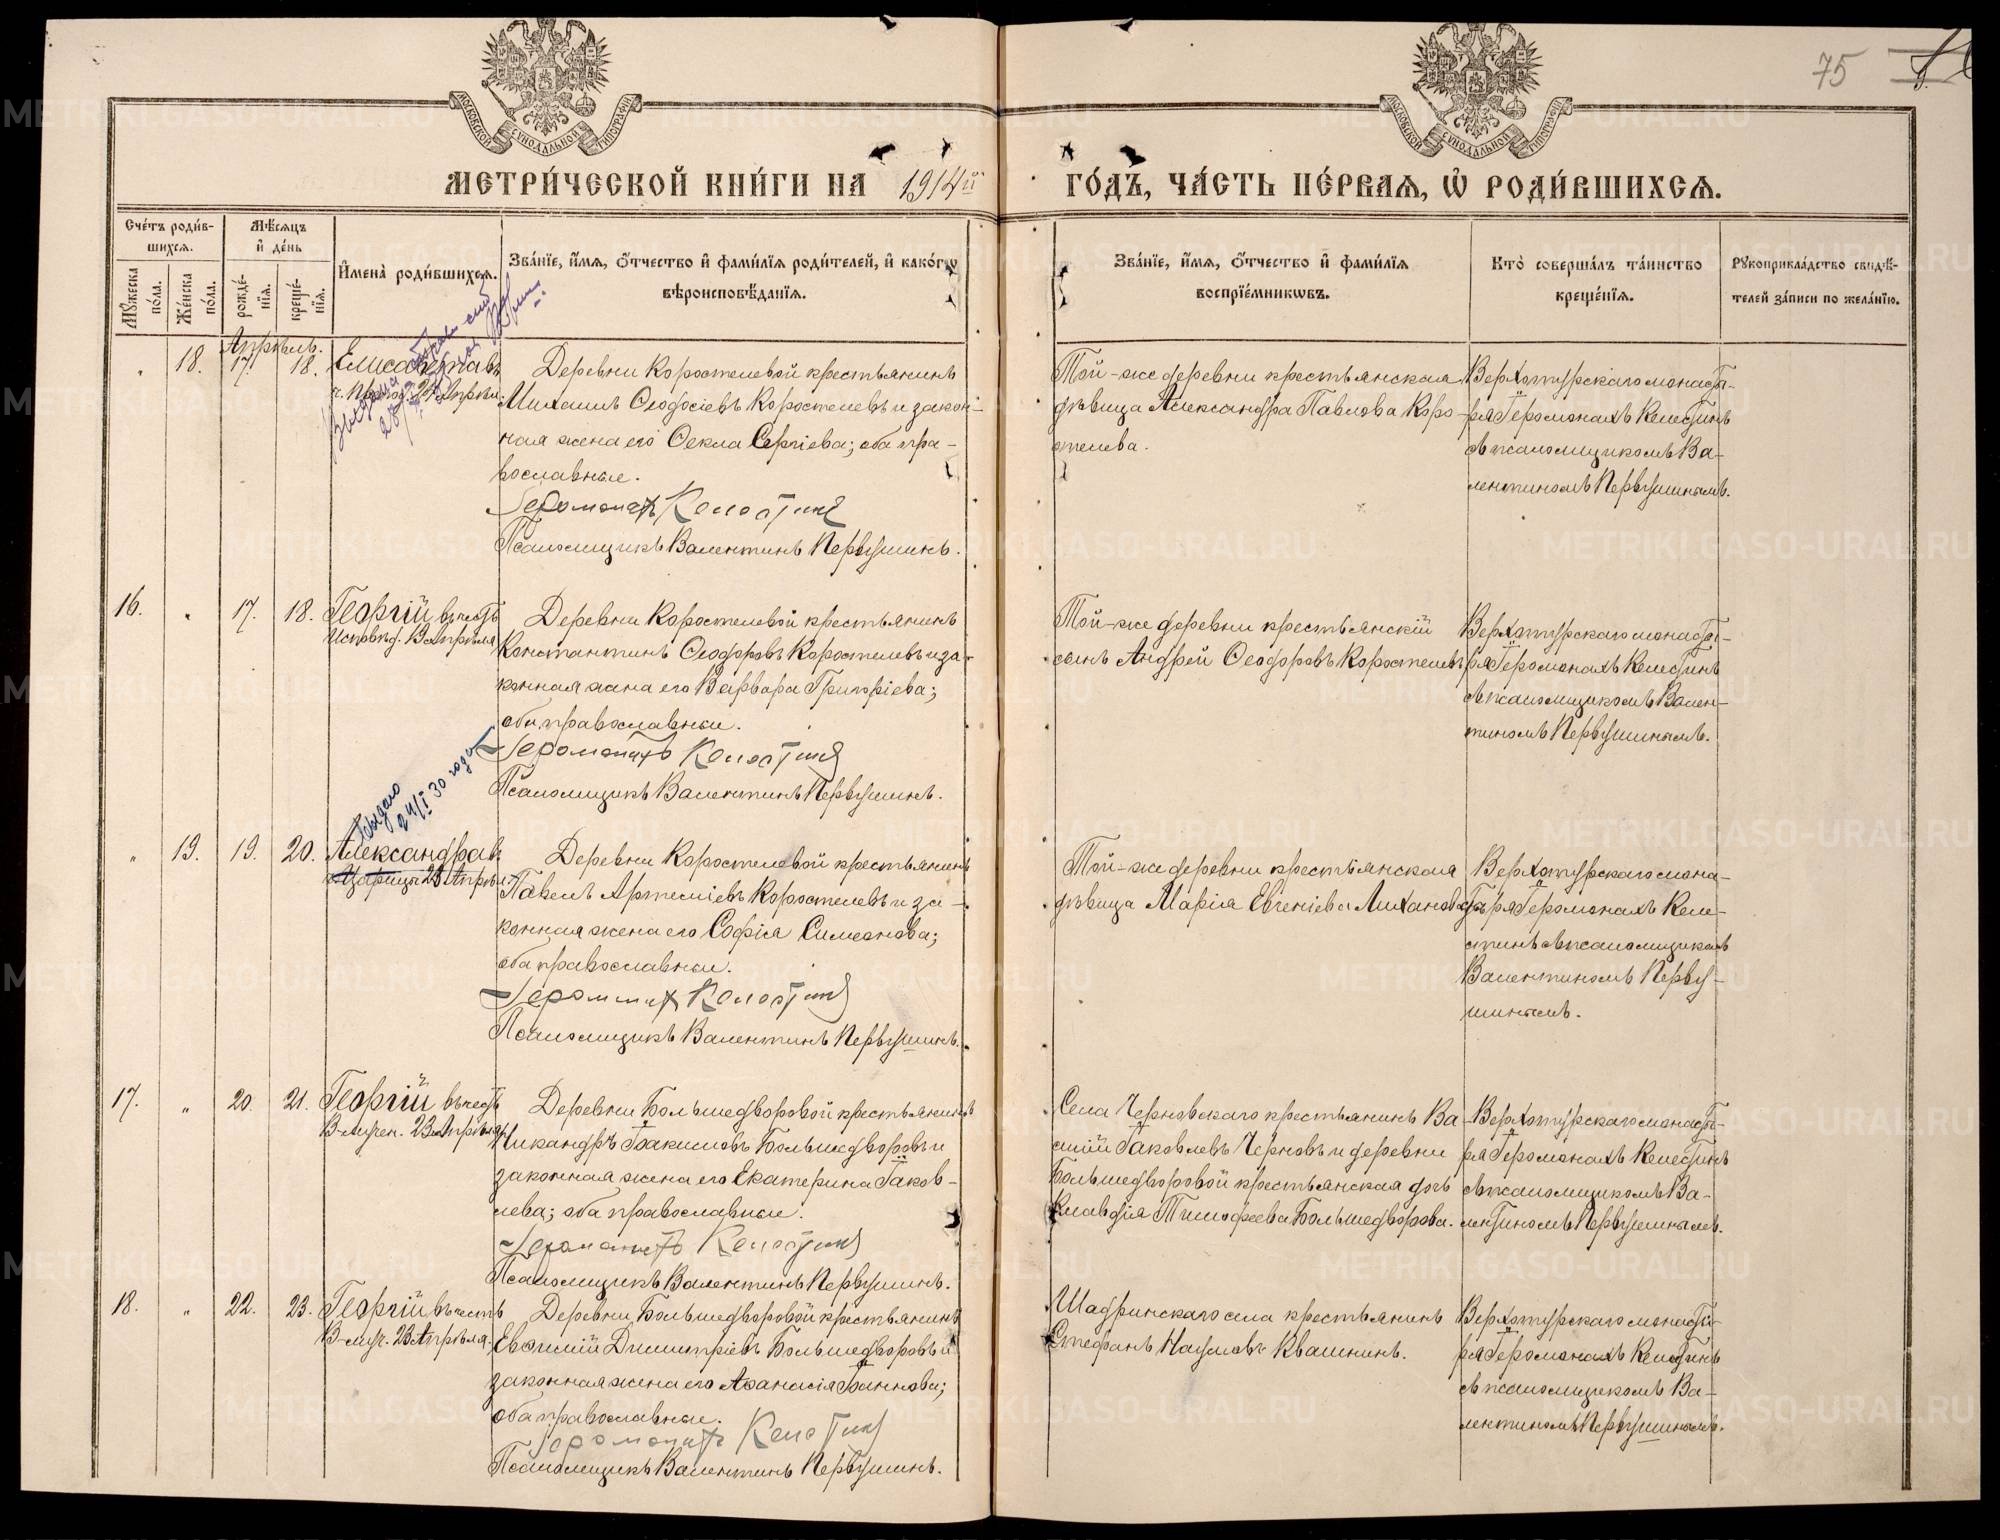 МОСКОВСКОЙ СѴНОДАЛЬНОЙ ТИПОГРАФІИ
МОСКОВСКОЙ СѴНОДАЛЬНОЙ ТИПОГРАФІИ
75
МЕТРИ́ЧЕСКОЙ КНИ́ГИ НА 1914й ГО́ДЪ, ЧА́СТЬ ПЕ́РВАѦ, Ѡ҆ РОДИ́ВШИХСѦ.
Сче́тъ роди́в-
шихсѧ.
Мꙋ́жеска по́ла.
Же́нска по́ла.
Мѣ́сѧцъ
и҆ де́нь
рожде́-
нїѧ.
креще́-
нїѧ.
И҆мена̀ роди́вшихсѧ.
Зва́нїе, и҆́мѧ, ѻ҆́тчество и҆ фами́лїѧ роди́телей, и҆ како́гѡ
вѣроисповѣ́данїѧ.
Зва́нїе, и҆́мѧ, ѻ҆́тчество и҆ фами́лїѧ
воспрїе́мникѡвъ.
Кто̀ соверша́лъ та́инство
креще́нїѧ.
Рꙋкоприкла́дство свидѣ́-
телей за́писи по жела́нїю.
Апрѣль.
„ 18. 17. 18. Елисавета въ
ч. Препод. 24 Апрѣля.
Деревни Коростелевой крестьянинъ
Михаилъ Ѳеодосіевъ Коростелевъ и закон-
ная жена его Ѳекла Сергіева; оба пра-
вославные.
Іеромонахъ Келестинъ
Псаломщикъ Валентинъ Первушинъ.
Той-же деревни крестьянская
дѣвица Александра Павлова Коро-
стелева.
Верхотурскаго монасты-
ря Іеромонахъ Келестинъ
съ псаломщикомъ Ва-
лентиномъ Первушинымъ.
16. „ 17. 18. Георгій въ честь
Исповѣд. Апрѣля
Деревни Коростелевой крестьянинъ
Константинъ Ѳеодоровъ Коростелевъ и за-
конная жена его Варвара Григоріева;
оба православные.
Іеромонахъ Келестинъ
Псаломщикъ Валентинъ Первушинъ.
Той-же деревни крестьянскій
сынъ Андрей Ѳеодоровъ Коростелевъ
Верхотурскаго монасты-
ря Іеромонахъ Келестинъ
съ псаломщикомъ Вален-
тиномъ Первушинымъ.
Выдано
24/I 30 года
„ 19. 19. 20. Александра въ
Царицы 23 Апрѣля
Деревни Коростелевой крестьянинъ
Павелъ Артеміевъ Коростелевъ и за-
конная жена его Софія Симеонова;
оба православные.
Іеромонахъ Келестинъ
Псаломщикъ Валентинъ Первушинъ.
Той-же деревни крестьянская
дѣвица Марія Евгеніева Лиханова
Верхотурскаго мона-
стыря Іеромонахъ Келе-
стинъ съ псаломщикомъ
Валентиномъ Перву-
шинымъ.
17. „ 20. 21. Георгій въ честь
В-мучен. 23 Апрѣля
Деревни Большедворовой крестьянинъ
Никандръ Іоакимовъ Большедворовъ и
законная жена его Екатерина Іаков-
лева; оба православные.
Іеромонахъ Келестинъ
Псаломщикъ Валентинъ Первушинъ.
Села Черновскаго крестьянинъ Ва-
силій Іаковлевъ Черновъ и деревни
Большедворовой крестьянская дочь
Клавдія Тимофеева Большедворова.
Верхотурскаго монасты-
ря Іеромонахъ Келестинъ
съ псаломщикомъ Ва-
лентиномъ Первушинымъ.
18. „ 22. 23. Георгій въ честь
В-муч. 23 Апрѣля.
Деревни Большедворовой крестьянинъ
Евѳимій Димитріевъ Большедворовъ и
законная жена его Аѳанасія Іоаннова;
оба православные.
Іеромонахъ Келестинъ
Псаломщикъ Валентинъ Первушинъ.
Шадринскаго села крестьянинъ
Стефанъ Наумовъ Квашнинъ.
Верхотурскаго монасты-
ря Іеромонахъ Келестинъ
съ псаломщикомъ Ва-
лентиномъ Первушинымъ.
METRIKI.GASO-URAL.RU